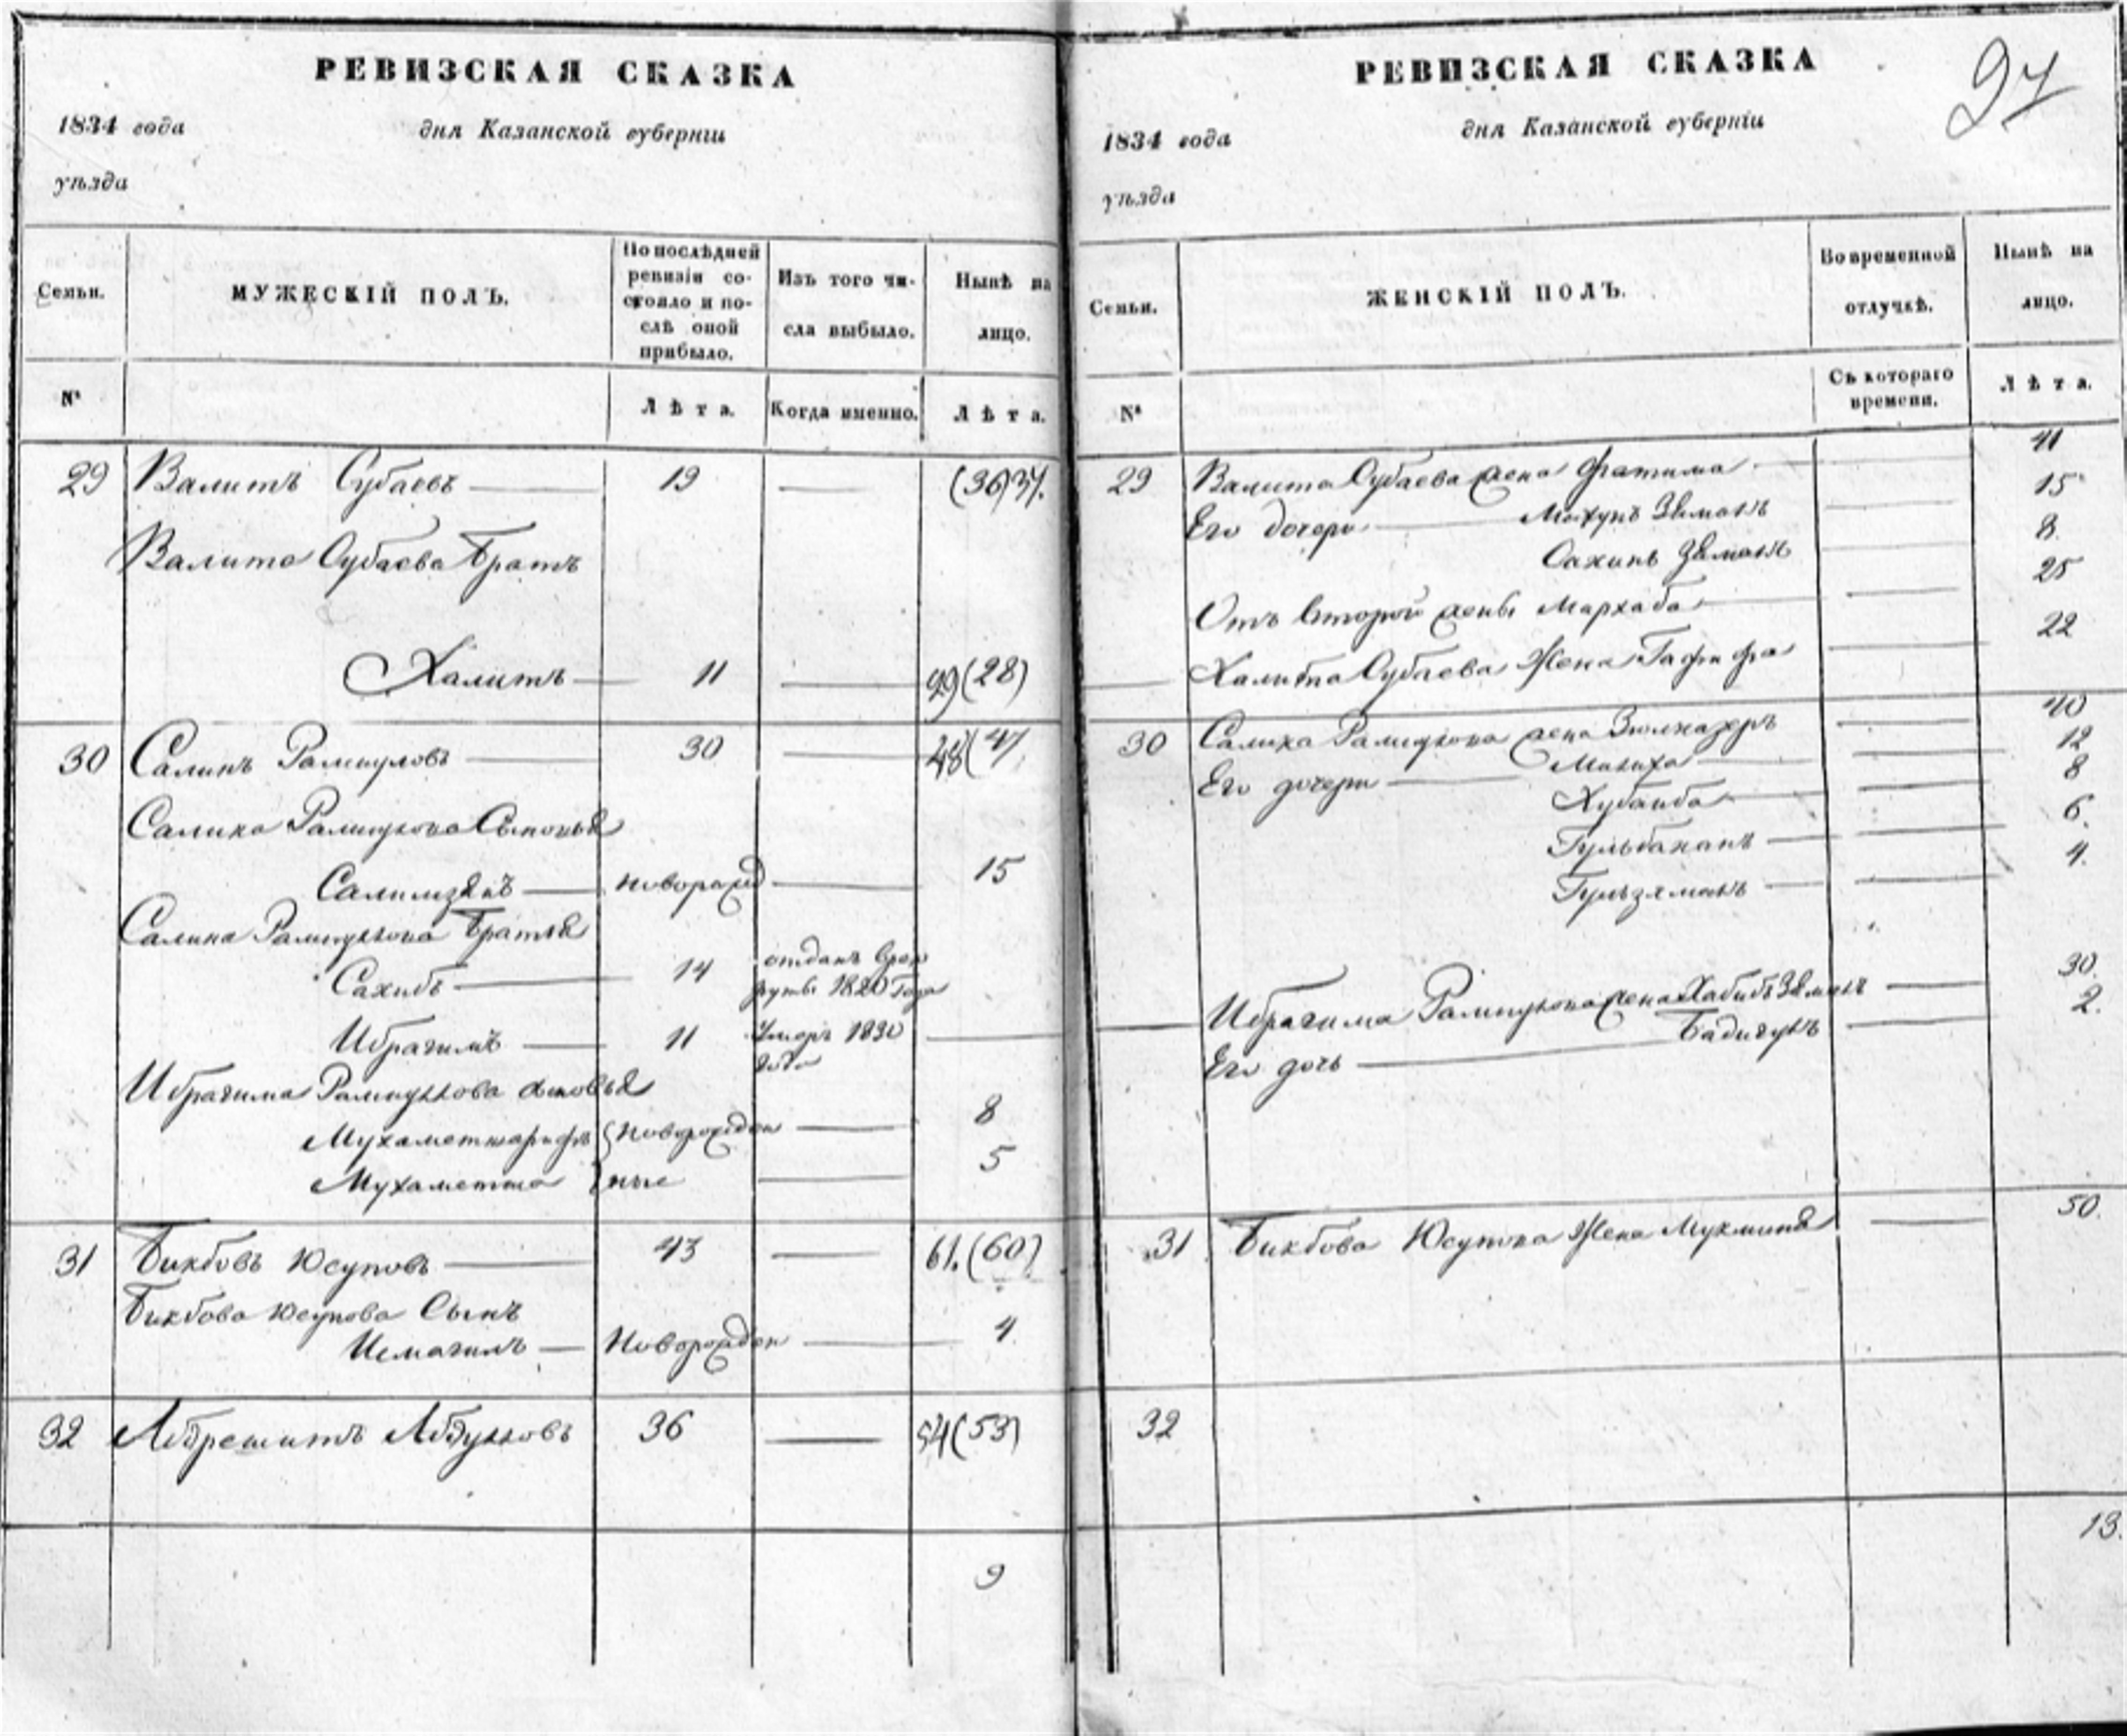 РЕВИЗСКАЯ СКАЗКА
1834 года дня Казанской губерніи
уѣзда
Семьи. МУЖЕСКІЙ ПОЛЪ. По послѣдней ревизіи состояло и послѣ оной прибыло. Изъ того числа выбыло. Нынѣ на лицо.
№ Лѣта. Когда именно. Лѣта.
29 Валитъ Субаевъ 19 (36) 37.
Валита Субаева Братъ
Халитъ 11 29 (28)
30 Салихъ Рамкуловъ 30 48 (47
Салиха Рамкулова Сыновья
Салимзянъ новорожд 15
Салиха Рамкулова Братья
Сахибъ 14 отданъ врек
руты 1820 Года
Ибрагимъ 11 Умеръ 1830
года
Ибрагима Рамкулова сыновья
Мухаметшарифъ новорожден 8
Мухаметша ные 5
31 Бикбовъ Юсуповъ 43 61. (60)
Бикбова Юсупова Сынъ
Исмагилъ Новорожден 4
32 Абрешитъ Абдулловъ 36 54 (53)
9
РЕВИЗСКАЯ СКАЗКА 27
1834 года дня Казанской губерніи
уѣзда
Семьи. ЖЕНСКІЙ ПОЛЪ. Во временной отлучкѣ. Нынѣ на лицо.
№ Съ котораго времени. Лѣта.
29 Валита Субаева жена Фатима 41
Его дочери 15
8
Отъ второй жены Мархаба 25
Халита Субаева Жена Гафифа 22
30 Салиха Рамкулова жена 40
Его дочери Малиха 12
Хубаиба 8
Гульбананъ 6.
Гульзяманъ 4.
Ибрагима Рамкулова жена ХабибЗяманъ 30.
Его дочь 2.
31 Бикбова Юсупова Жена 50.
32
13.